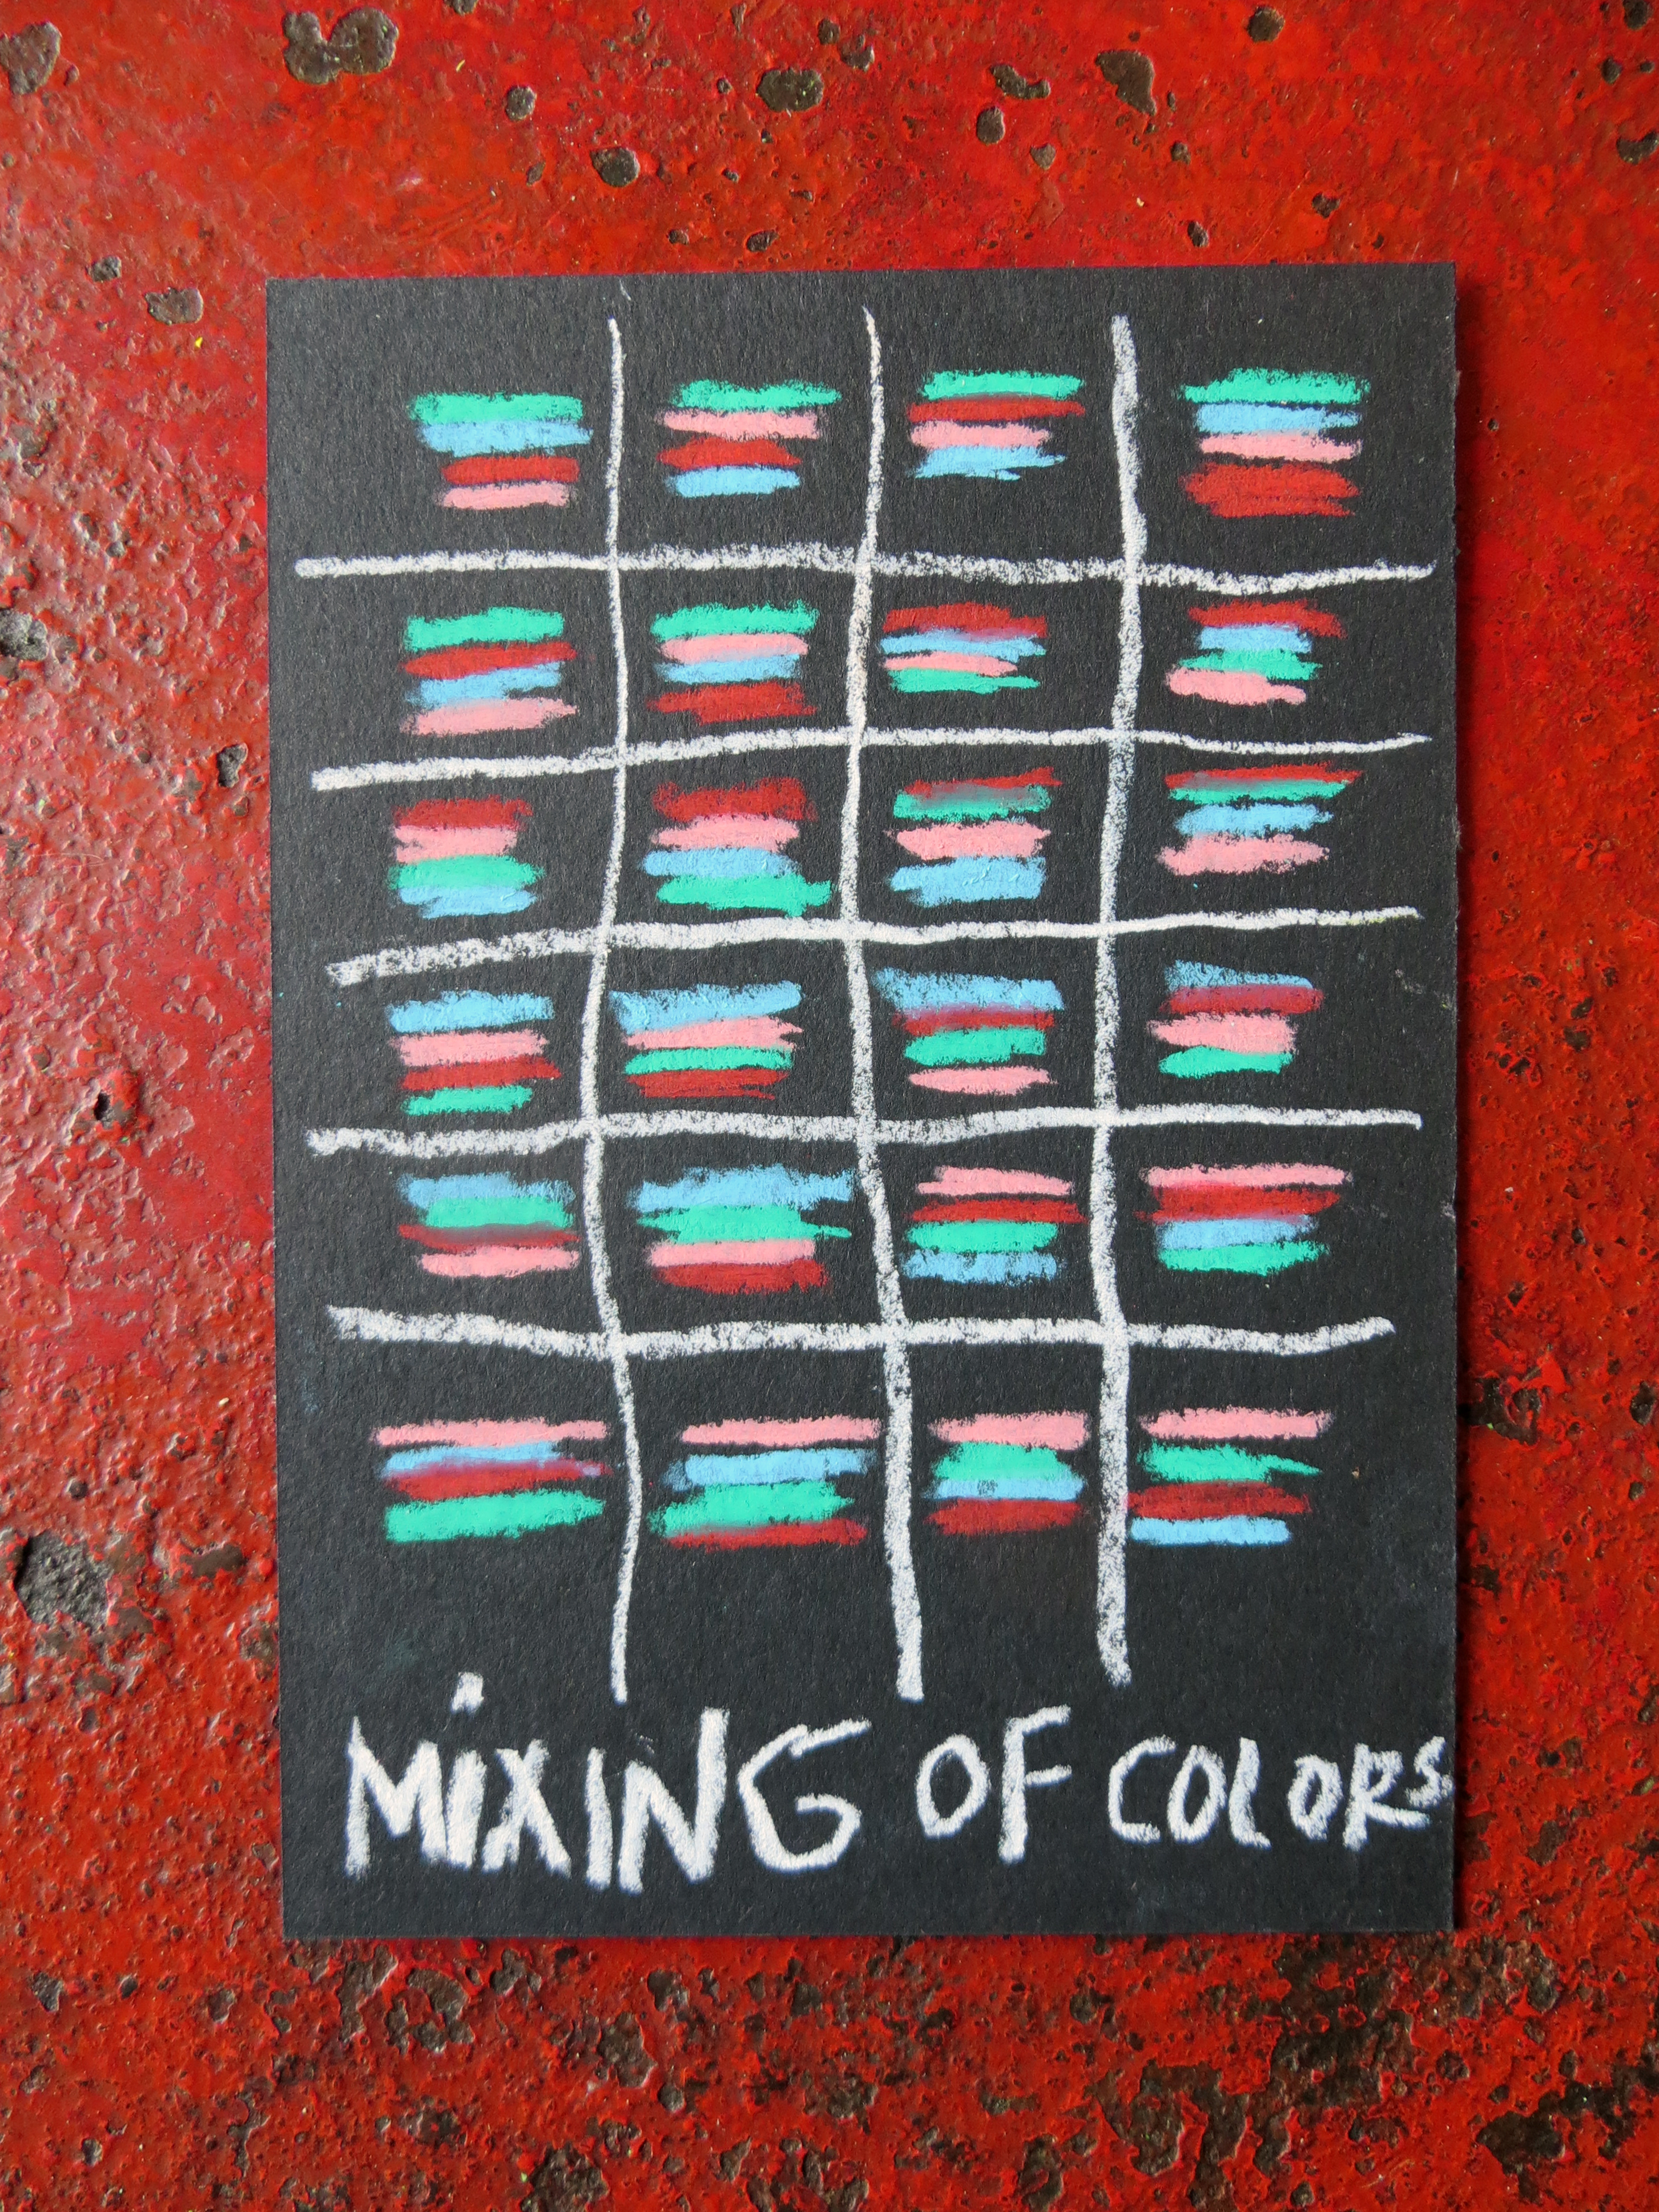 MiXING OF COLORS